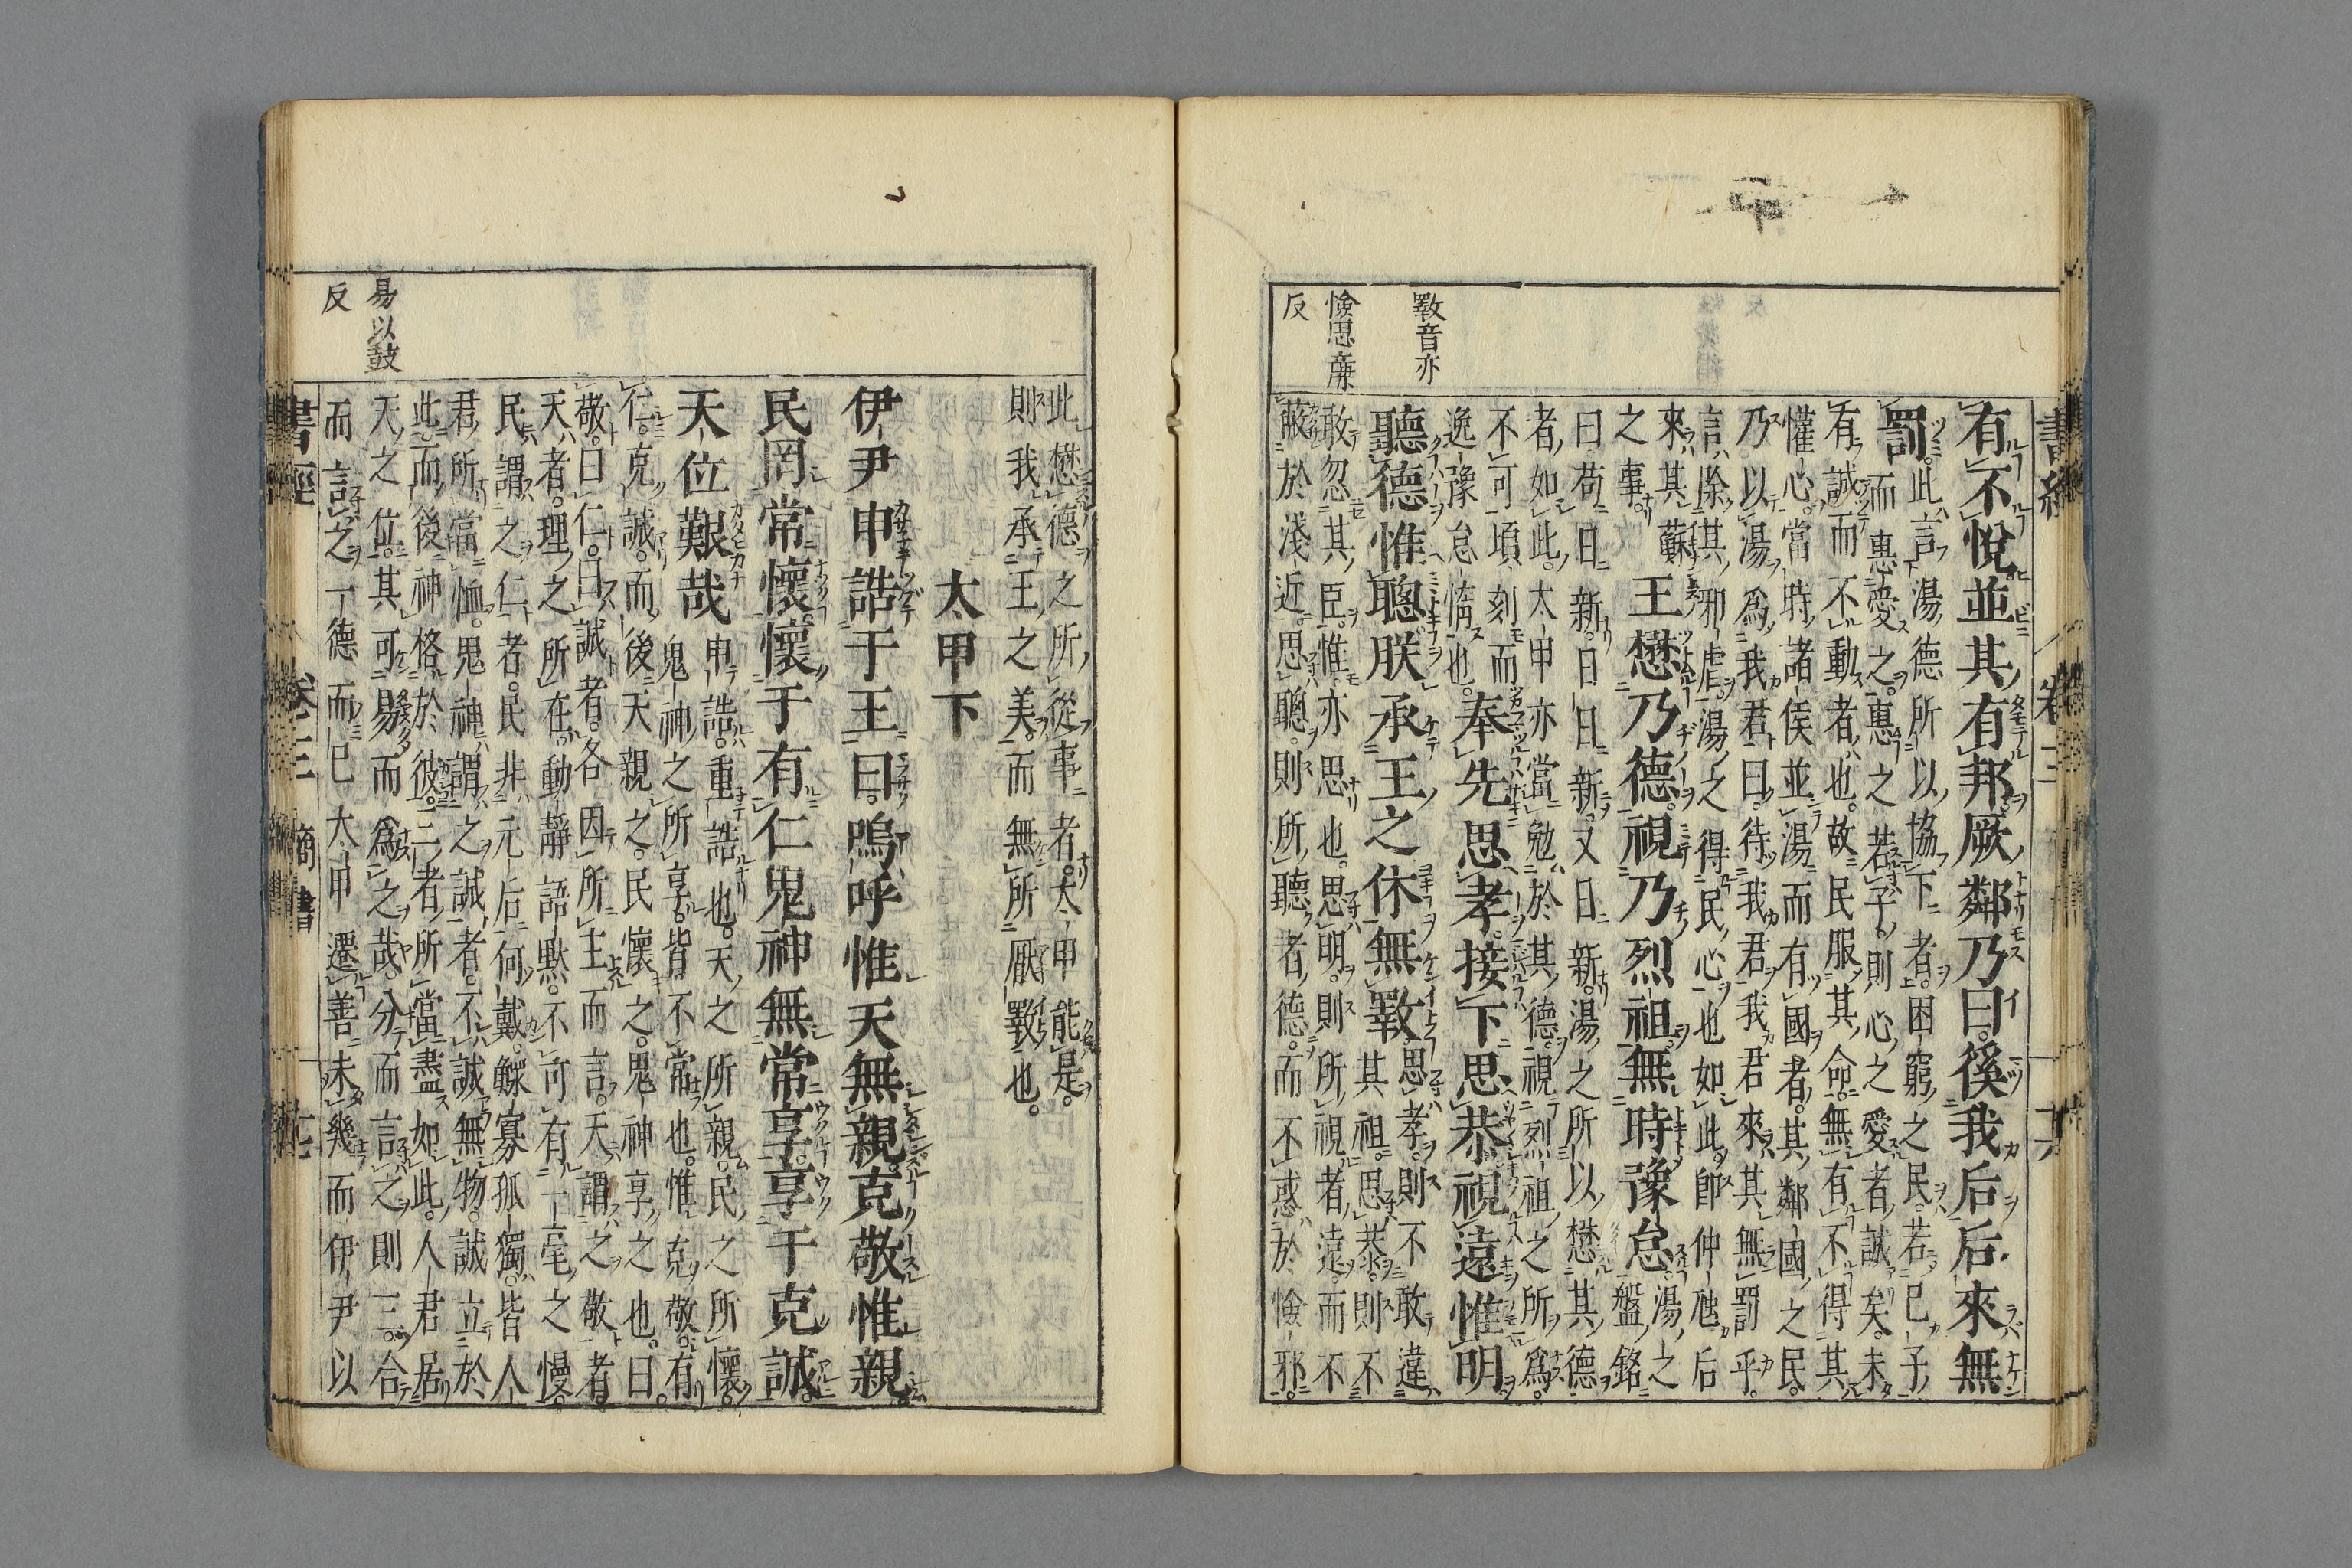 書經 卷三 十六
有不悅並其有邦厥鄰乃曰徯我后后來無
罰
此言湯德所以協下者困窮之民若己子
而惠愛之惠之若子則心之愛者誠矣未
有誠而不動者也故民服其命無有不得其
懽心當時諸侯並湯而有國者其鄰國之民
乃以湯爲我君曰待我君我君來其無罰乎
言除其邪虐湯之得民心也如此卽仲虺后
來其蘇
之事
王懋乃德視乃烈祖無時豫怠
湯之
盤銘
曰苟日新日日新又日新湯之所以懋其德
者如此太甲亦當勉於其德視烈祖之所爲
不可頃刻而
逸豫怠惰也
奉先思孝接下思恭視遠惟明
聽德惟聰朕承王之休無斁
思孝則不敢違
其祖思恭則不
敢忽其臣惟亦思也思明則所視者遠而不
蔽於淺近思聰則所聽者德而不惑於憸邪
斁音亦
憸思廉
反
此懋德之所從事者太甲能是
則我承王之美而無所厭斁也
太甲下
伊尹申誥于王曰嗚呼惟天無親克敬惟親
民罔常懷懷于有仁鬼神無常享享于克誠
天位艱哉
申誥重誥也天之所親民之所懷
鬼神之所享皆不常也惟克敬有
仁克誠而後天親之民懷之鬼神享之也曰
敬曰仁曰誠者各因所主而言天謂之敬者
天者理之所在動靜語默不可有一毫之慢
民謂之仁者民非元后何戴鰥寡孤獨皆人
君所當恤鬼神謂之誠者不誠無物誠立於
此而後神格於彼三者所當盡如此人君居
天之位其可易而爲之哉分而言之則三合
而言之一德而已太甲遷善未幾而伊尹以
易以豉
反
書經 卷三 商書